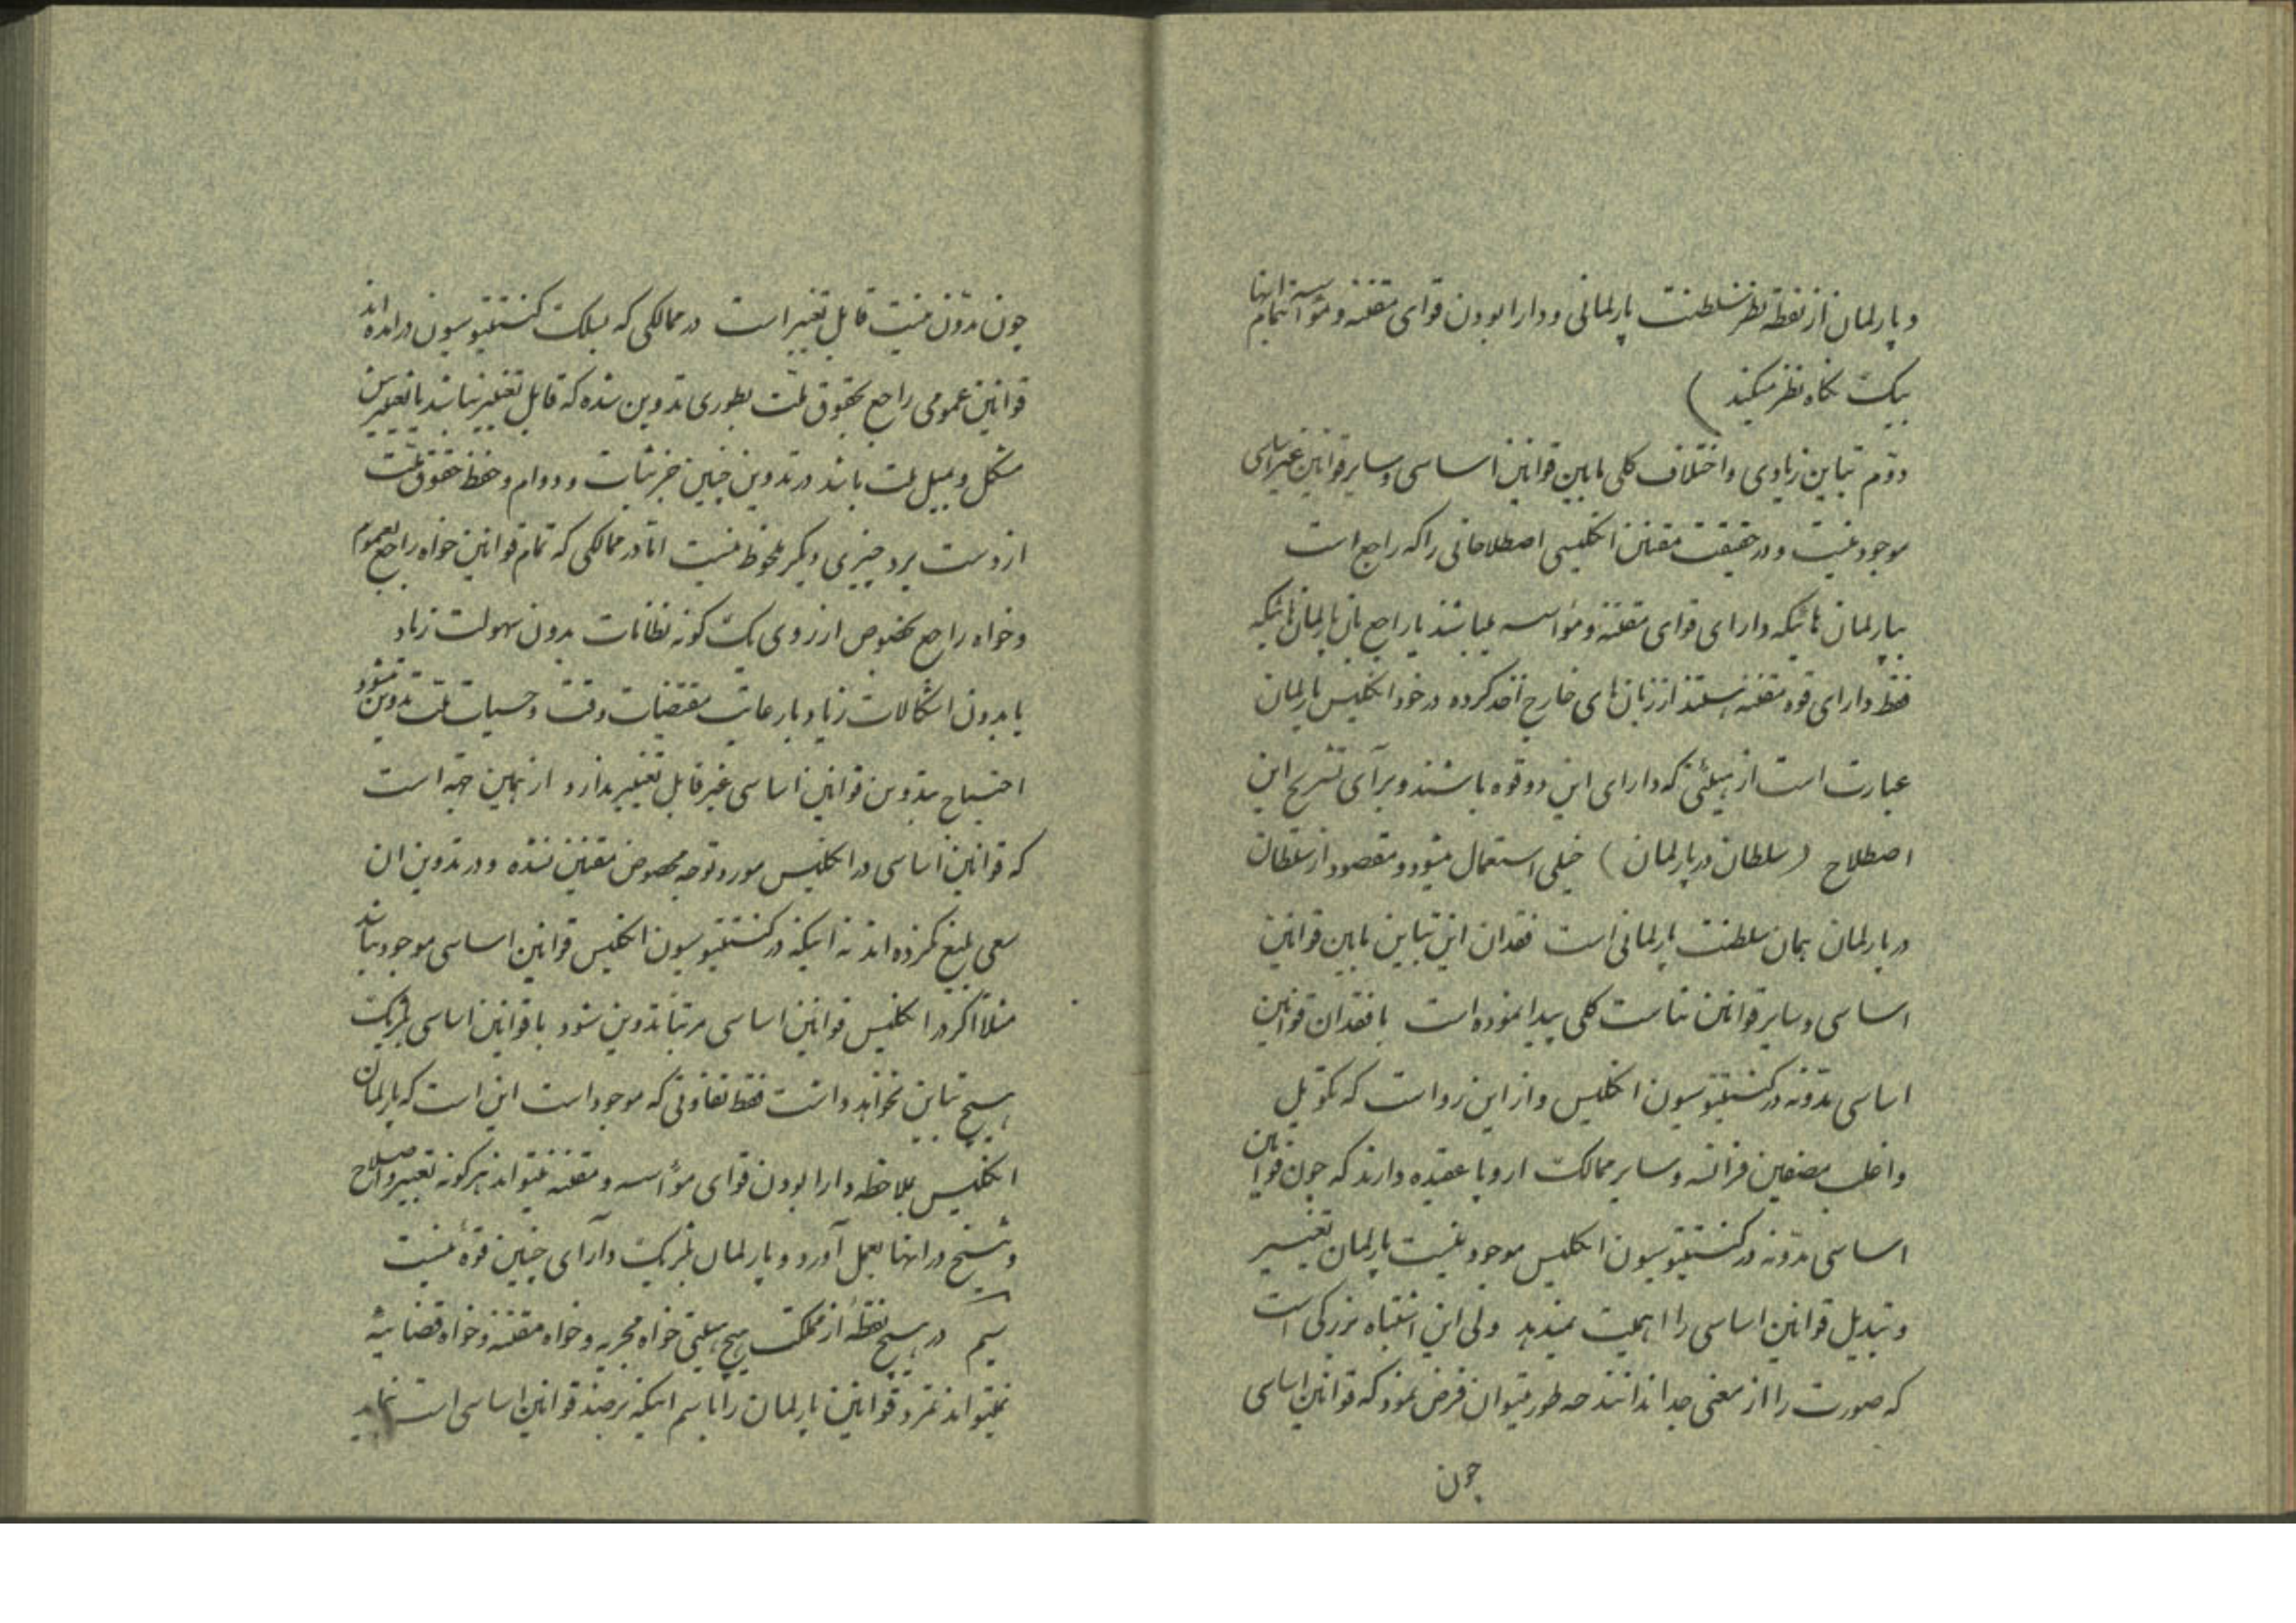 و پارلمان از نقطه نظر سلطنت پارلمانی و دارا بودن قوای مقننه و مؤسسه بتمام انها
بیک نگاه نظر میکنید )
دوّم تباین زیادی و اختلاف کلی مابین قوانین اساسی و سایر قوانین غیر اساسی
موجود نیست و در حقیقت مقننین انگلیسی اصطلاحاتی را که راجع است
بپارلمان هائیکه دارای قوای مقننه و مؤسسه میباشند یا راجع بان پارلمان هائیکه
فقط دارای قوه مقننه هستند از زبان های خارج اخذ کرده در خود انگلیس پارلمان
عبارت است از هیئتی که دارای این دو قوه باشند و برای تشریح این
اصطلاح ( سلطان در پارلمان ) خیلی استعمال میشود و مقصود از سلطان
در پارلمان همان سلطنت پارلمانی است فقدان این تباین مابین قوانین
اساسی و سایر قوانین تناسب کلی پیدا نموده است با فقدان قوانین
اساسی مدوّنه در کنستیتوسیون انگلیس و از این رو است که تکویل
و اغلب مصنفین فرانسه و سایر ممالک اروپا عقیده دارند که چون قوانین
اساسی مدوّنه در کنستیتوسیون انگلیس موجود نیست پارلمان تغییر
و تبدیل قوانین اساسی را اهمیت نمیدهد ولی این اشتباه بزرگی است
که صورت را از معنی جدا ندانند چه طور میتوان فرض نمود که قوانین اساسی
چون
چون مدوّن نیست قابل تغییر است در ممالکی که بسلک کنستیتوسیون درامده اند
قوانین عمومی راجع بحقوق ملّت بطوری تدوین شده که قابل تغییر نباشد یا تغییرش
مشکل و بمیل ملت باشد در تدوین چنین جزئیات و دوام و حفظ حقوق ملّت
از دست برد چیزی دیگر ملحوظ نیست امّا در ممالکی که تمام قوانین خواه راجع بعموم
و خواه راجع بخصوص از روی یک گونه نظامات بدون سهولت زیاد
یا بدون اشکالات زیاد با رعایت مقتضیات وقت و حسیات ملّت تدوین میشود
احتیاج بتدوین قوانین اساسی غیر قابل تغییر ندارد از همین جهة است
که قوانین اساسی در انگلیس مورد توجه مخصوص مقننین نشده و در تدوین ان
سعی بلیغ نکرده اند نه اینکه در کنستیتوسیون انگلیس قوانین اساسی موجود نباشد
مثلاً اگر در انگلیس قوانین اساسی مرتباً تدوین شود با قوانین اساسی بلژیک
هیچ تباین نخواهد داشت فقط تفاوتی که موجود است این است که پارلمان
انگلیس بملاحظه دارا بودن قوای مؤسسه و مقننه میتواند هرگونه تغییر و اصلاح
و نسخ در انها بعمل آورد و پارلمان بلژیک دارای چنین قوّه نیست
سیم در هیچ نقطهٔ از مملکت هیچ هیئتی خواه مجریه و خواه مقننه و خواه قضائیه
نمیتواند تمرد قوانین پارلمان را باسم اینکه برضد قوانین اساسی است نماید